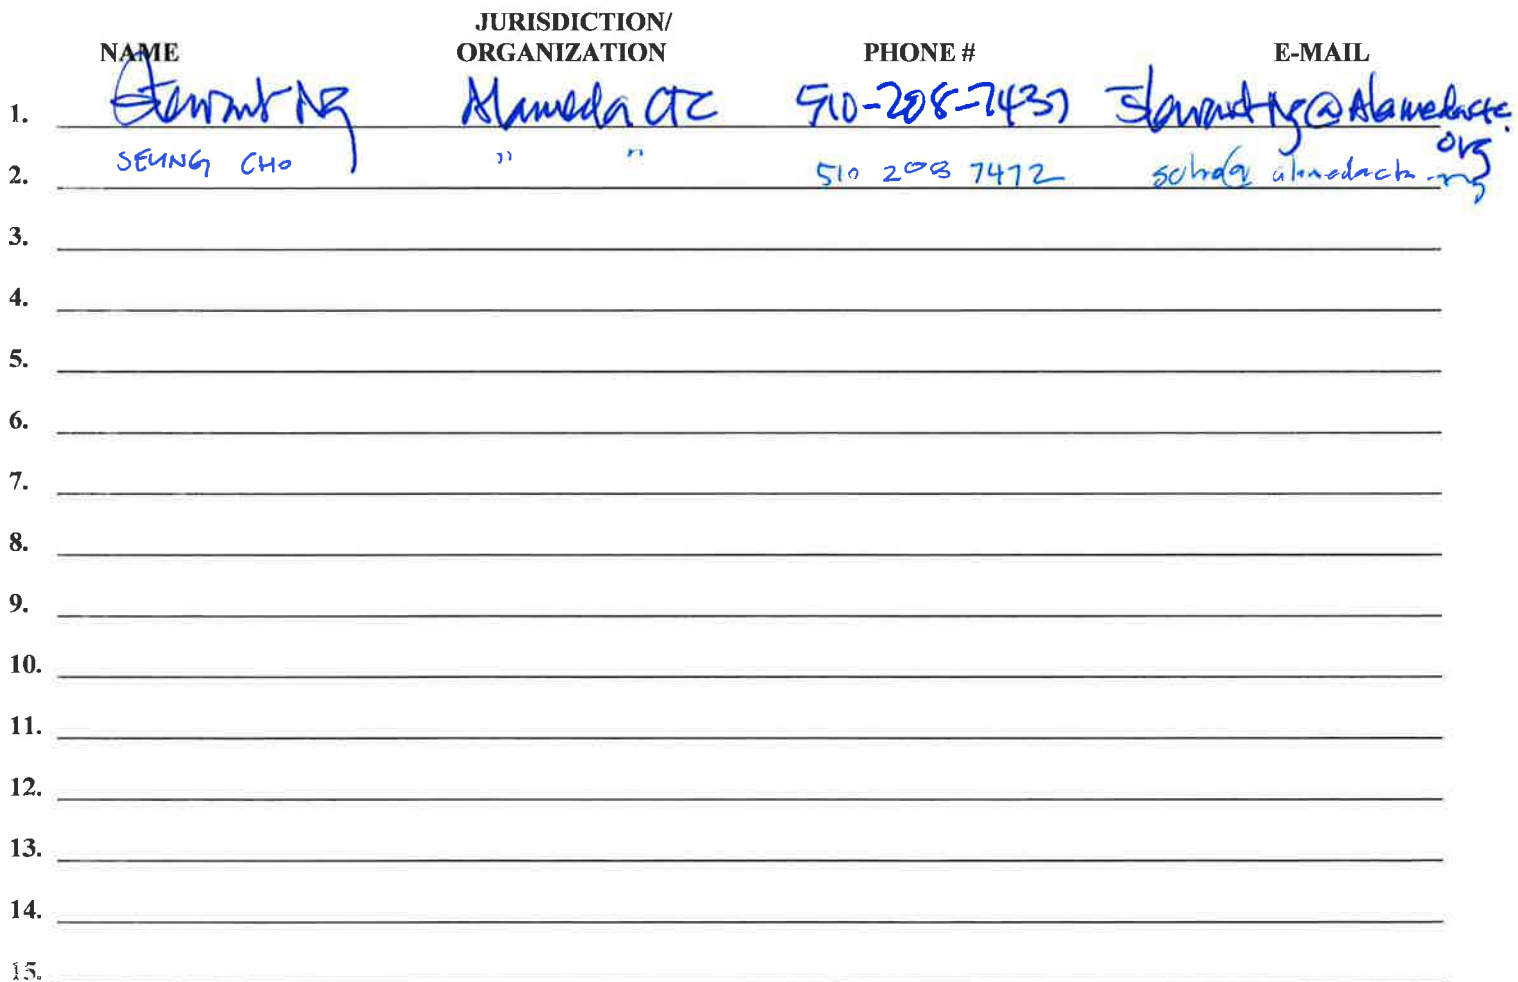 JURISDICTION/
NAME ORGANIZATION PHONE # E-MAIL
1. Stewart Ng Alameda CTC 510-208-7437 StewartNg@Alamedactc.
org
2. SEUNG CHO " " 510 208 7472
3.
4.
5.
6.
7.
8.
9.
10.
11.
12.
13.
14.
15.